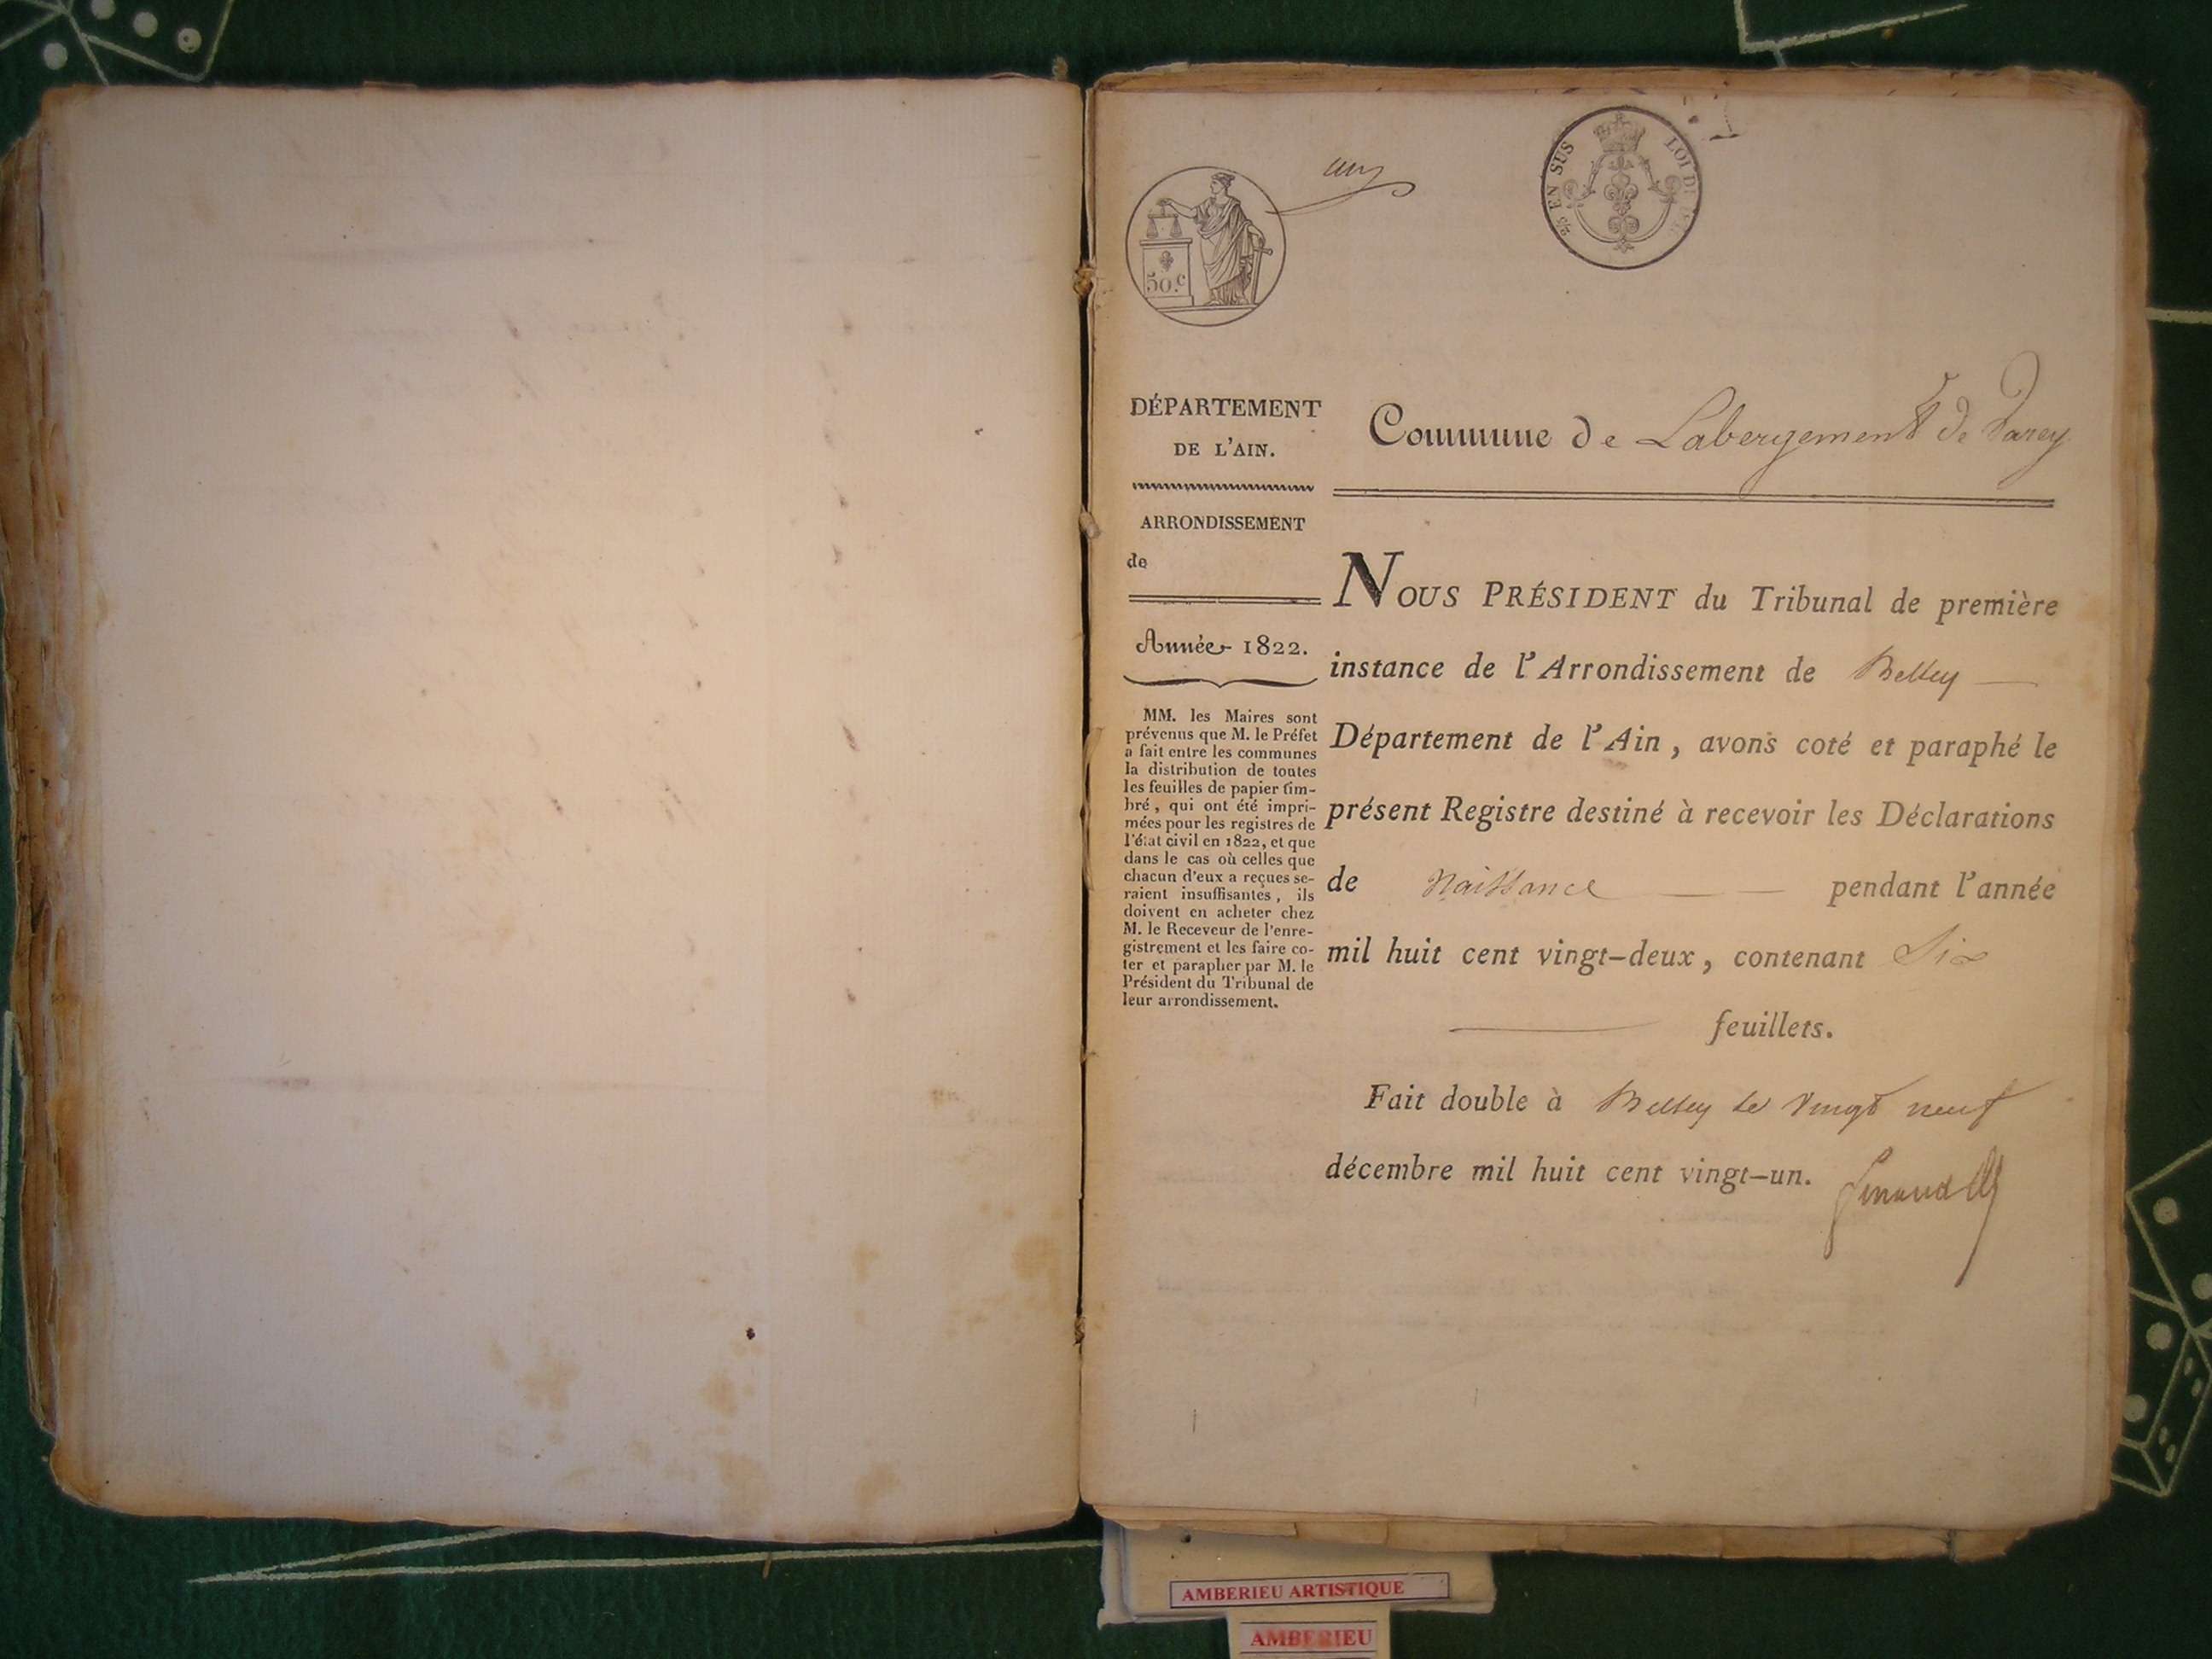 un
2/5 EN SUS
LOI D
50.c
DÉPARTEMENT
DE L'AIN.
ARRONDISSEMENT
de
Année 1822.
MM. les Maires sont
prévenus que M. le Préfet
a fait entre les communes
la distribution de toutes
les feuilles de papier tim-
bré, qui ont été impri-
mées pour les registres de
l'état civil en 1822, et que
dans le cas où celles que
chacun d'eux a reçues se-
raient insuffisantes, ils
doivent en acheter chez
M. le Receveur de l'enre-
gistrement et les faire co-
ter et parapher par M. le
Président du Tribunal de
leur arrondissement.
Commune de Labergement de Varey
NOUS PRÉSIDENT du Tribunal de première
instance de l'Arrondissement de Belley
Département de l'Ain, avons coté et paraphé le
présent Registre destiné à recevoir les Déclarations
de Naissance pendant l'année
mil huit cent vingt-deux, contenant Six
feuillets.
Fait double à Belley le Vingt neuf
décembre mil huit cent vingt-un.
AMBERIEU ARTISTIQUE
AMBERIEU